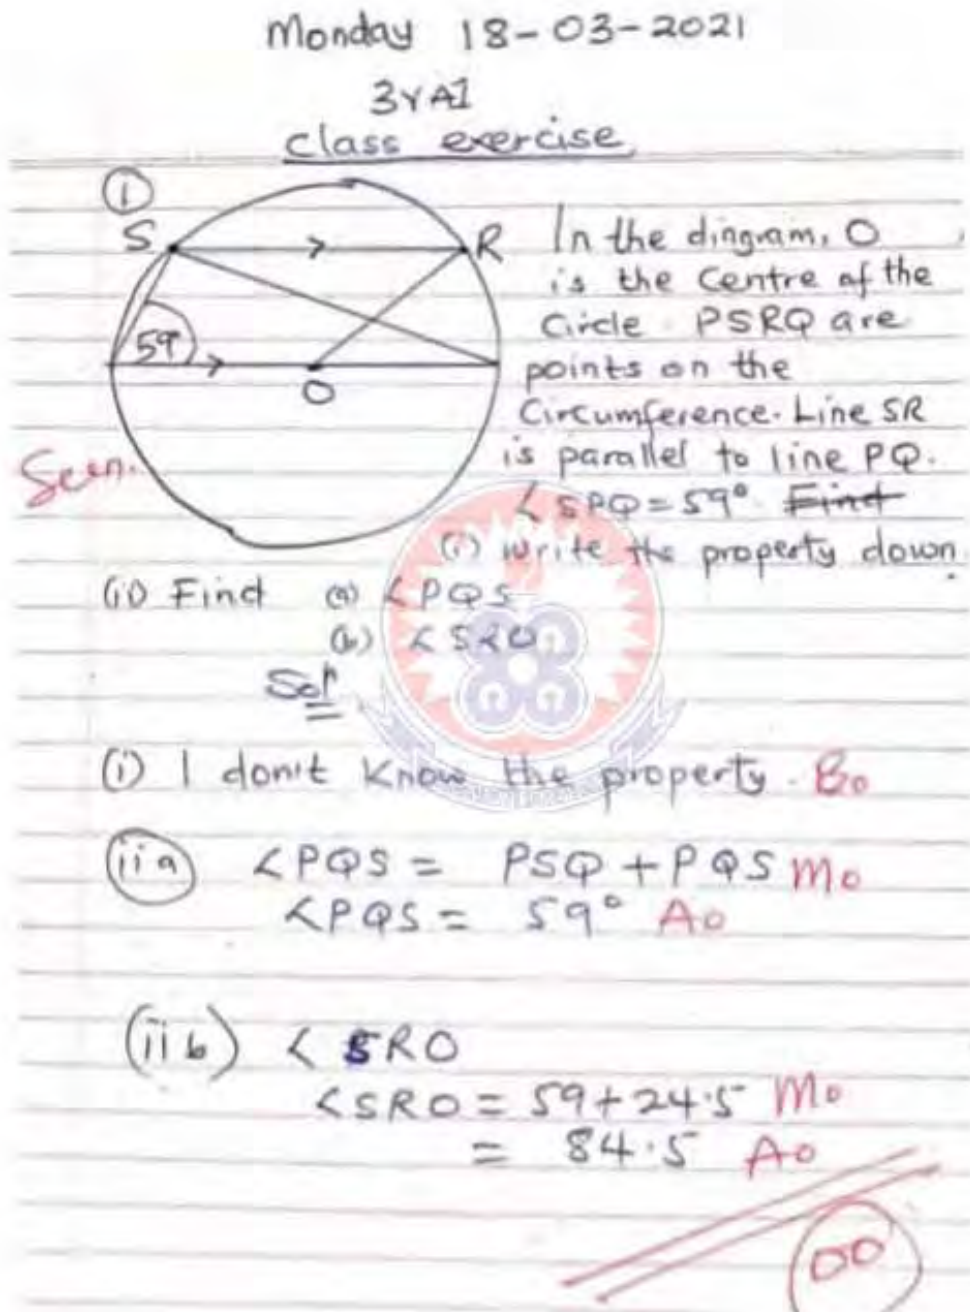 Monday 18-03-2021
3YA1
class exercise
①
S
R
59
O
In the dingram, O
is the Centre of the
Circle. PSRQ are
points on the
Circumference. Line SR
is parallel to line PQ.
Seen.
<SPQ = 59° Find
(i) write the property down.
(ii) Find (a) <PQS
(b) <SRO
Sol
(i) I don't know the property. B0
(iia) <PQS = PSQ + PQS M0
<PQS = 59° A0
(iib) <SRO
<SRO = 59+24.5 M0
= 84.5 A0
00